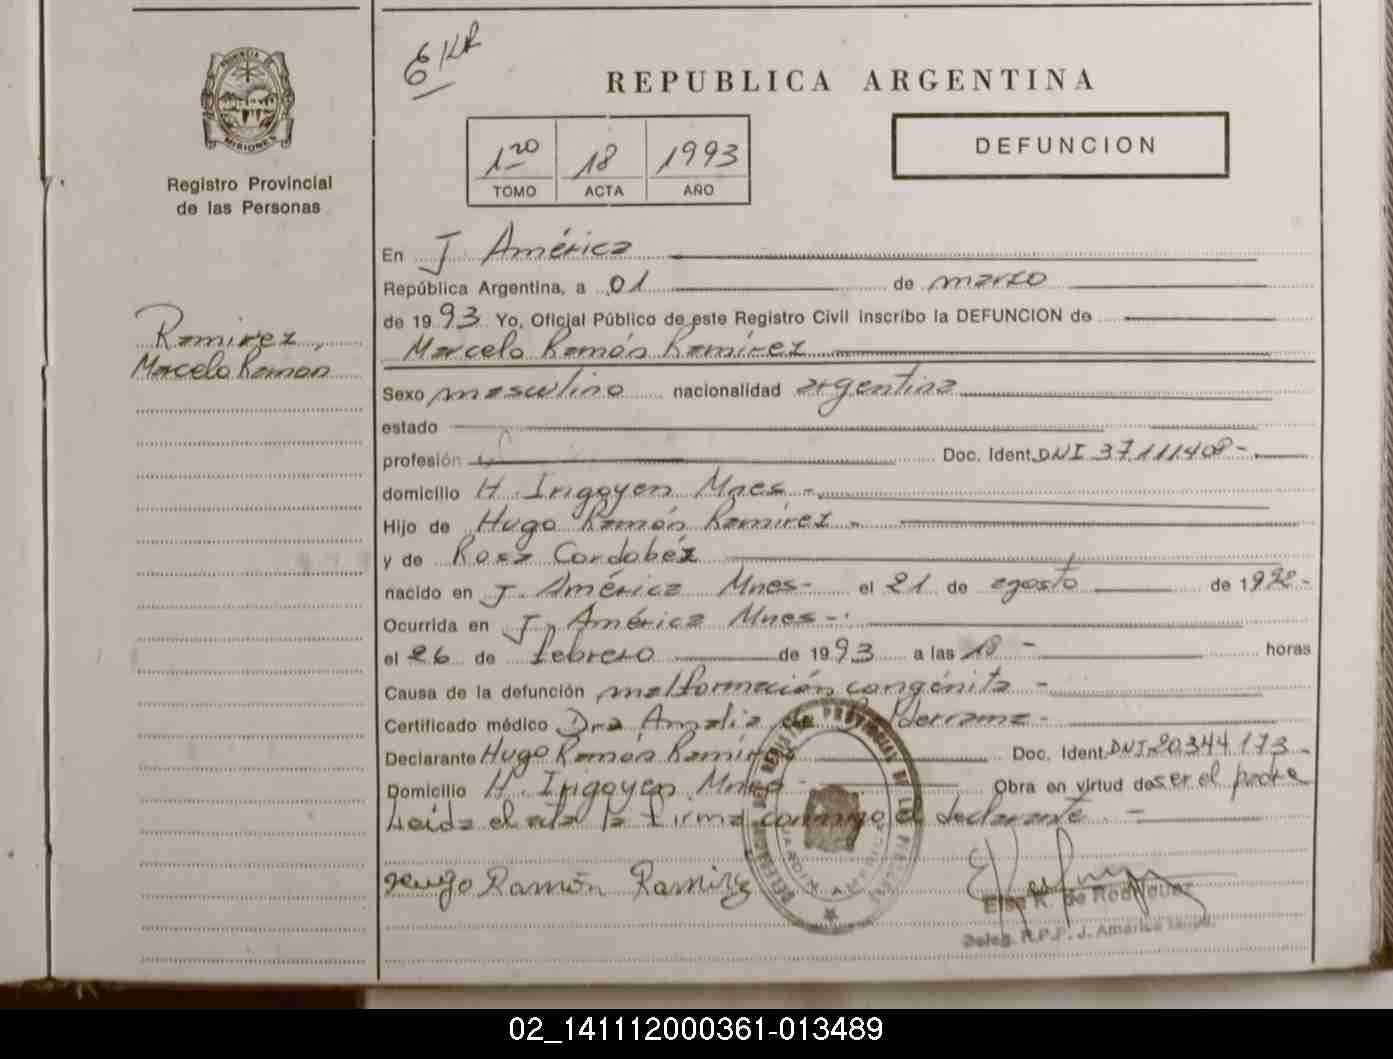 EKR
PROVINCIA DE
MISIONES
Registro Provincial
de las Personas
Ramirez,
Marcelo Ramon
REPUBLICA ARGENTINA
1ro 18 1993
TOMO ACTA AÑO
DEFUNCION
En J. América
República Argentina, a 01 de marzo
de 1993 Yo, Oficial Público de este Registro Civil inscribo la DEFUNCION de
Marcelo Ramón Ramírez
Sexo masculino nacionalidad argentina
estado
profesión Doc. Ident. DNI 37.111.408-
domicilio H. Irigoyen Mnes -
Hijo de Hugo Ramón Ramírez -
y de Rosa Cordobéz
nacido en J. América Mnes- el 21 de agosto de 1992-
Ocurrida en J. América Mnes-
el 26 de febrero de 1993 a las 18 - horas
Causa de la defunción malformación congénita -
Certificado médico Dra Amalia de
Declarante Hugo Ramón Ramírez Doc. Ident. DNI 20.344.173-
Domicilio H. Irigoyen Mnes - Obra en virtud de ser el padre
Leída el acta la firma conmigo el declarante. -
Hugo Ramón Ramirez
Elsa R. de Rodriguez
Deleg. R.P.P. J. América
02_141112000361-013489